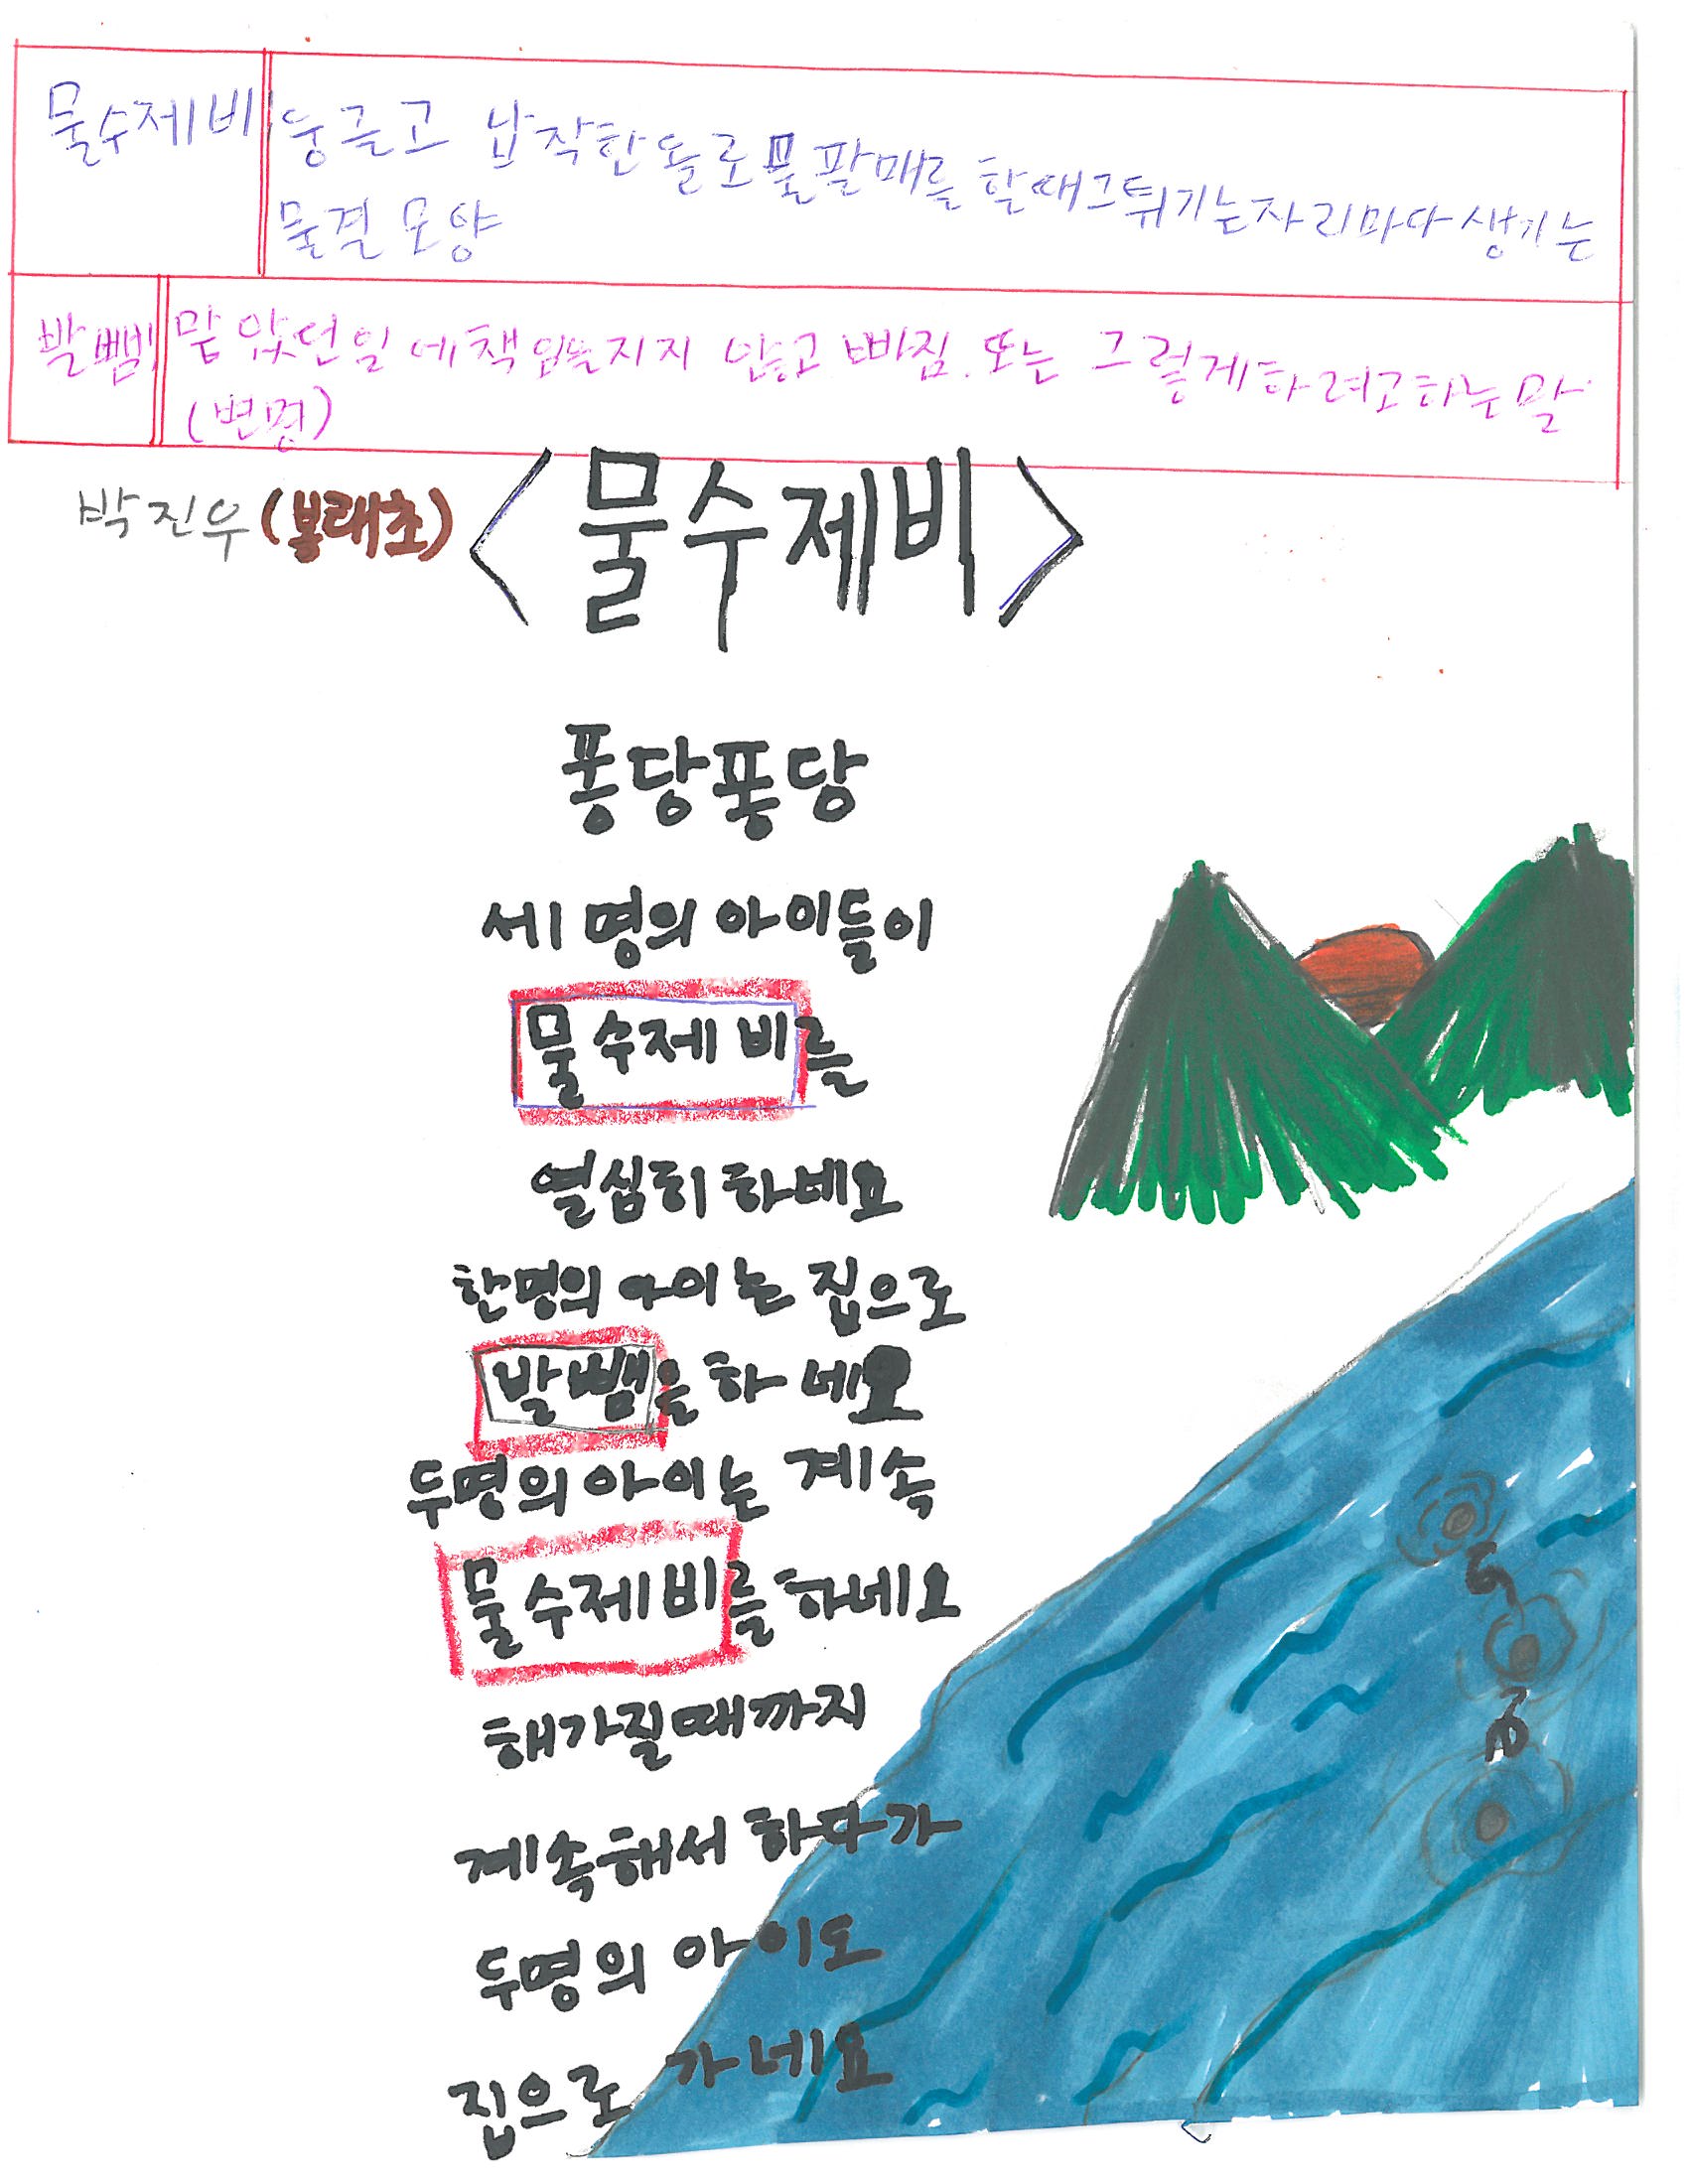 물수제비 둥글고 납작한 돌로 물팔매를 할때 그 튀기는 자리마다 생기는
물결 모양
발뺌 맡았던 일에 책임을 지지 않고 빠짐. 또는 그렇게 하려고 하는 말
(변명)
박진우 (봉래초) <물수제비>
퐁당퐁당
세 명의 아이들이
물수제비를
열심히 하네요
한명의 아이는 집으로
발뺌을 하네요
두명의 아이는 계속
물수제비를 하네요
해가질때까지
계속해서 하다가
두명의 아이도
집으로 가네요